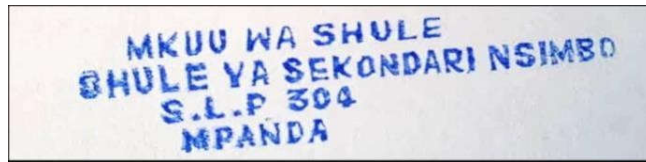 MKUU WA SHULE
SHULE YA SEKONDARI NSIMBO
S.L.P 304
MPANDA